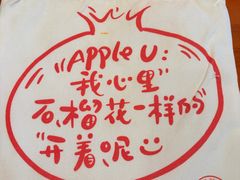 "APPLE U:
我心里"
石榴花一样的"
"开着呢